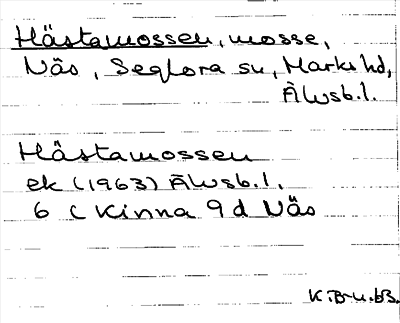 Hästamossen, mosse,
Näs, Seglora sn, Marks hd,
Älvsb. l.
Hästamossen
ek (1963) Älvsb. l.
6 C Kinna 9 d Näs